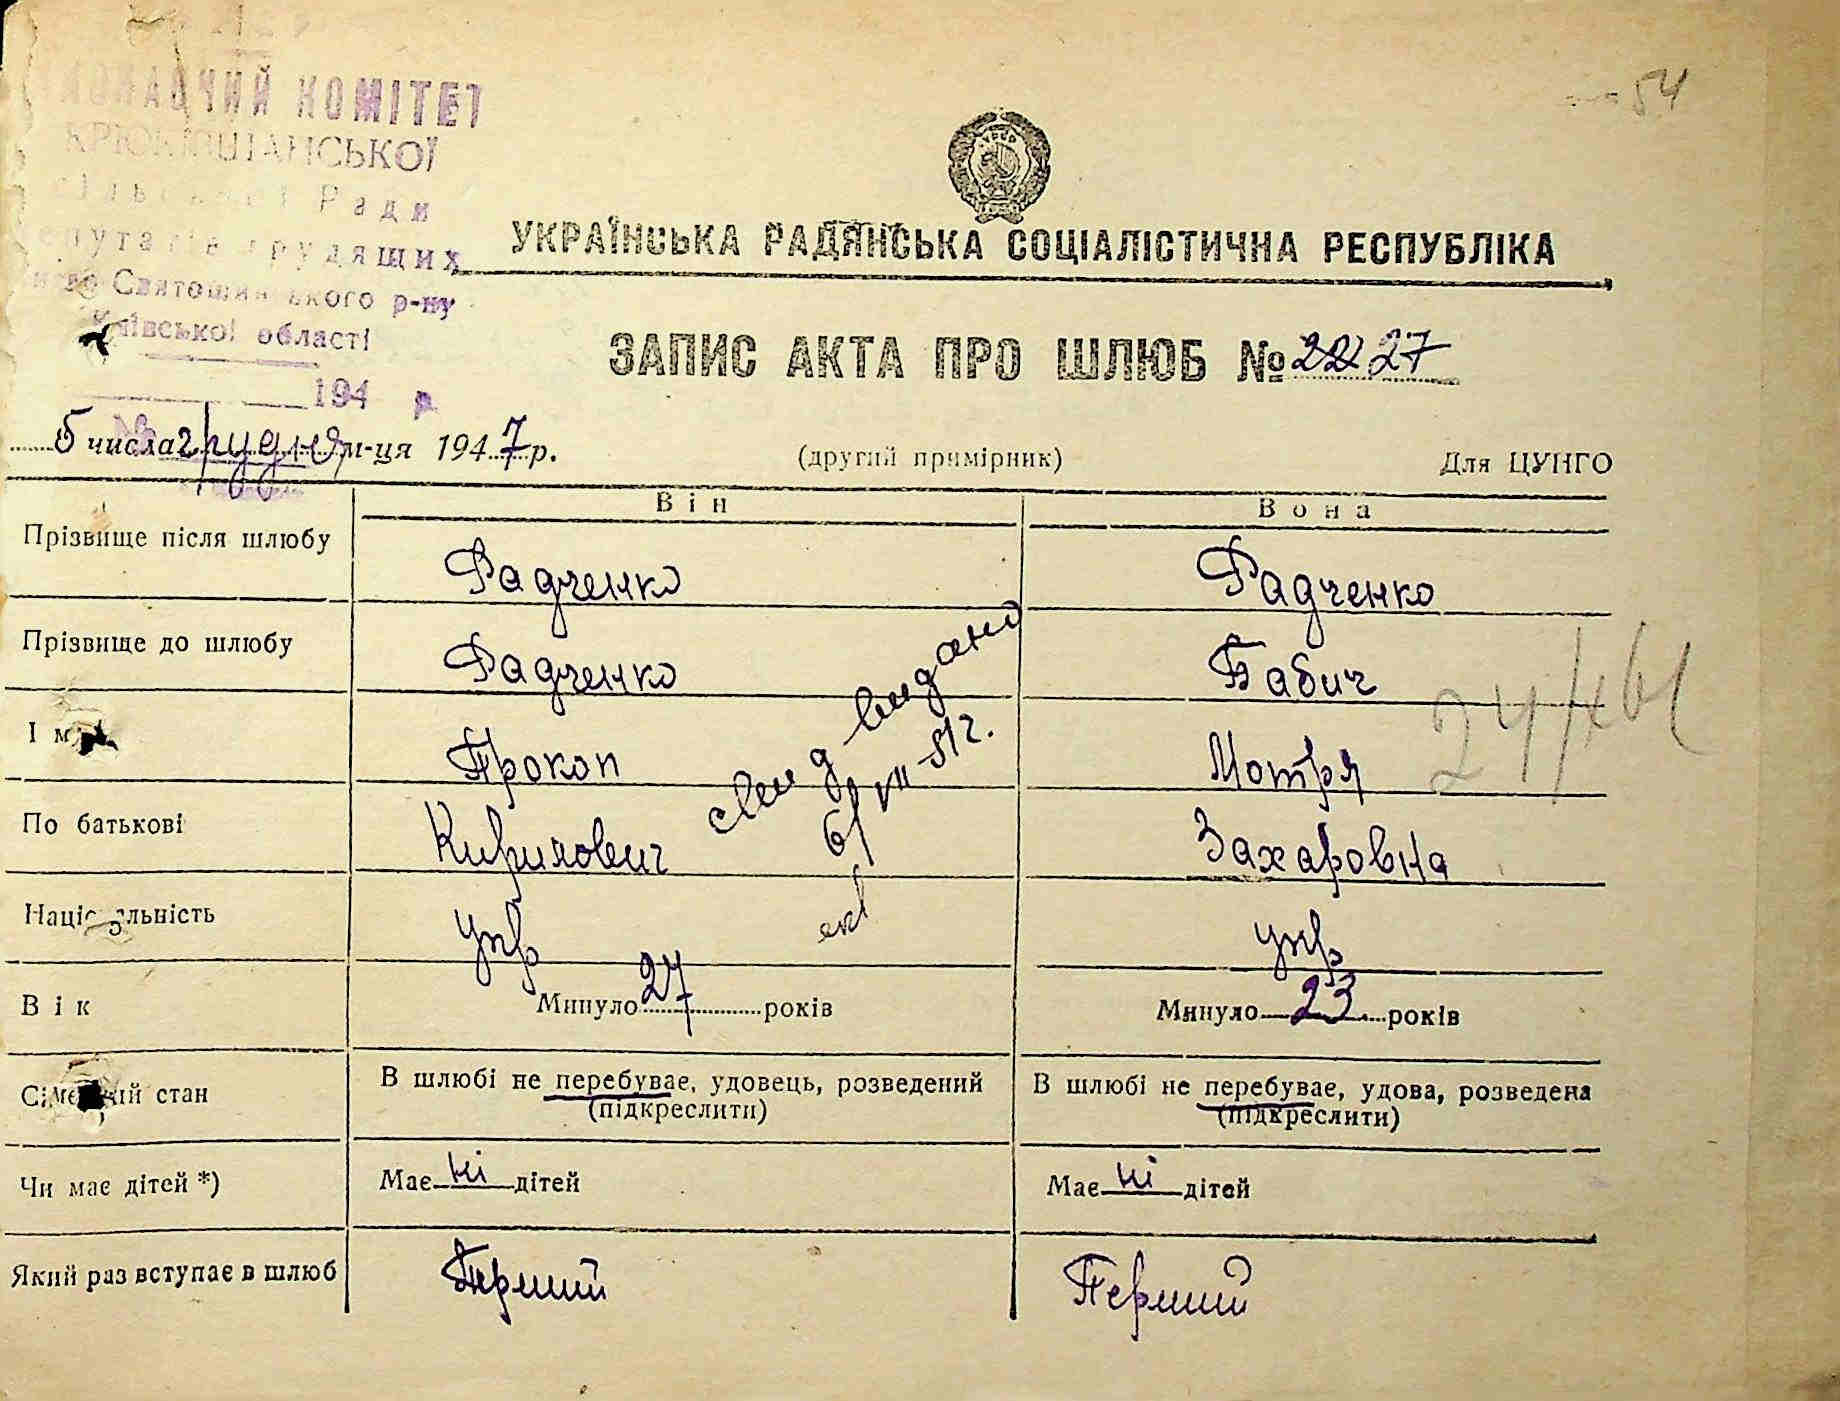 54
КОМІТЕТ
КРЮКІВЩАНСЬКОЇ
Ради
депутатів трудящих
Києво-Святошинського р-ну
Київської області
194 р
УКРАЇНСЬКА РАДЯНСЬКА СОЦІАЛІСТИЧНА РЕСПУБЛІКА
ЗАПИС АКТА ПРО ШЛЮБ № 22 27
5 числа грудня м-ця 1947 р.
(другий примірник)
Для ЦУНГО
Він
Вона
Прізвище після шлюбу
Радченко
Радченко
Прізвище до шлюбу
Радченко
Бабич
Ім
Прокоп
Мотря
По батькові
Кирилович
Захаровна
Національність
укр
укр
свид видано
6/VII-51г.
Вік
Минуло 27 років
Минуло 23 років
Сімейний стан
В шлюбі не перебуває, удовець, розведений
(підкреслити)
В шлюбі не перебуває, удова, розведена
(підкреслити)
Чи має дітей *)
Має ні дітей
Має ні дітей
Який раз вступає в шлюб
Перший
Перший